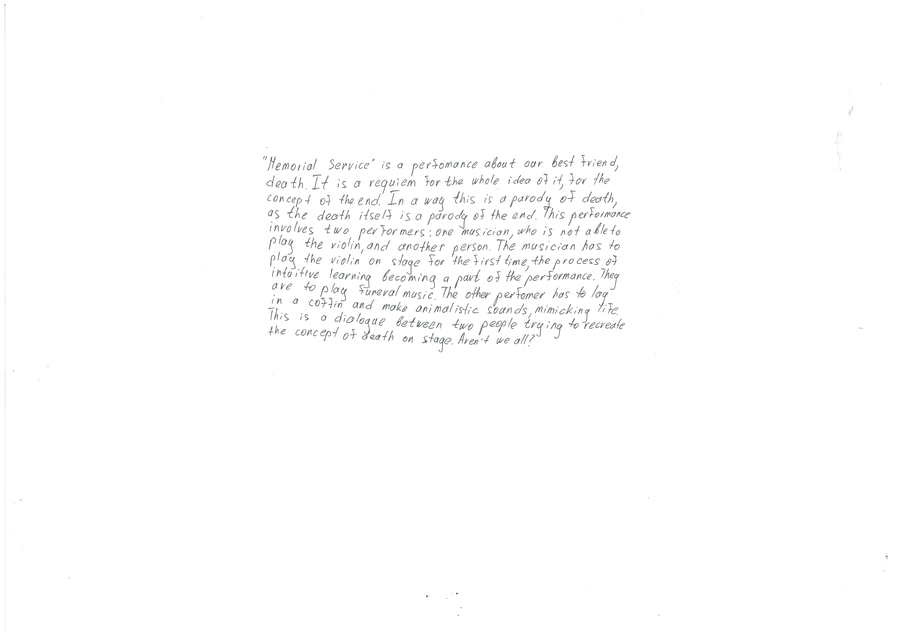 "Memorial Service" is a perfomance about our best friend,
death. It is a requiem for the whole idea of it, for the
concept of the end. In a way this is a parody of death,
as the death itself is a parody of the end. This performance
involves two performers: one musician, who is not able to
play the violin, and another person. The musician has to
play the violin on stage for the first time, the process of
intuitive learning becoming a part of the performance. They
are to play funeral music. The other perfomer has to lay
in a coffin and make animalistic sounds, mimicking life.
This is a dialogue between two people trying to recreate
the concept of death on stage. Aren't we all?